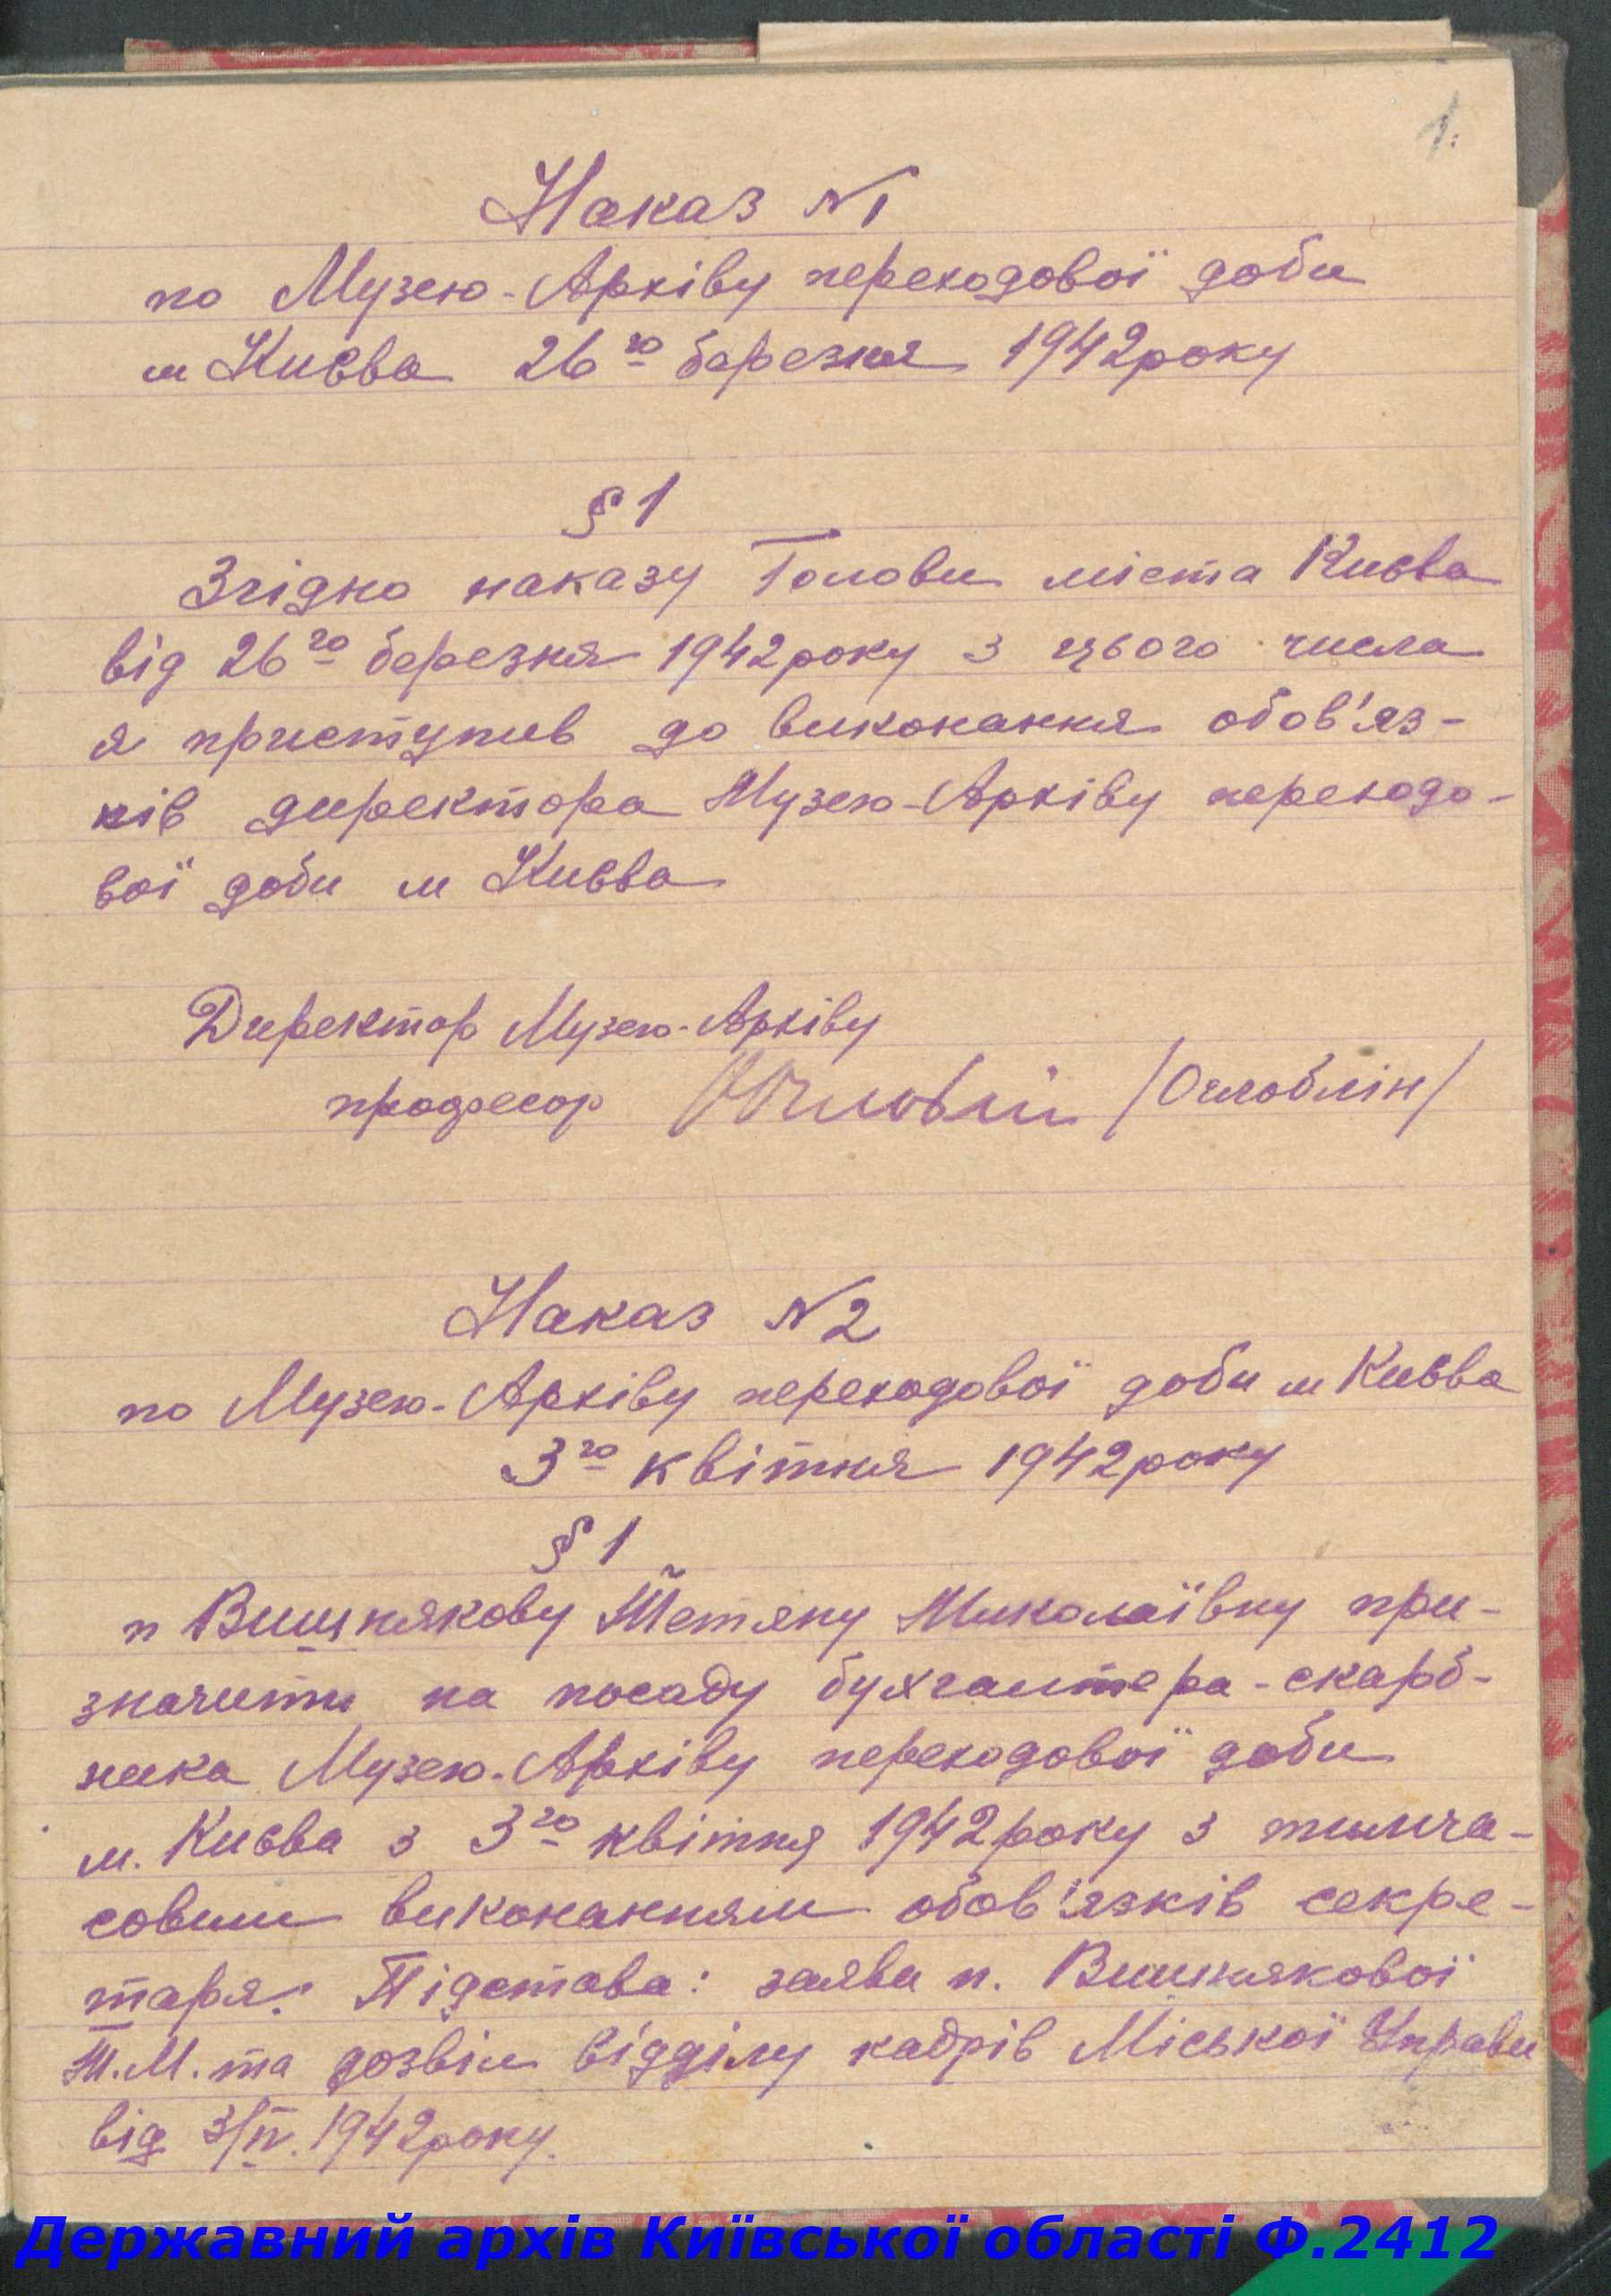 1.
Наказ №1
по Музею-Архіву переходової доби
м Києва 26го березня 1942року
§ 1
Згідно наказу Голови міста Києва
від 26го березня 1942року з цього числа
я приступив до виконання обов'яз-
ків директора Музею-Архіву переходо-
вої доби м Києва
Директор Музею-Архіву
професор /Оглоблін/
Наказ №2
по Музею-Архіву переходової доби м Києва
3го квітня 1942року
§ 1
п Вишнякову Тетяну Миколаївну при-
значити на посаду бухгалтера-скарб-
ника Музею-Архіву переходової доби
м. Києва з 3го квітня 1942року з тимча-
совим виконанням обов'язків секре-
таря. Підстава: заява п. Вишнякової
Т.М. та дозвіл відділу кадрів Міської Управи
від 3/IV.1942року.
Державний архів Київської області Ф.2412